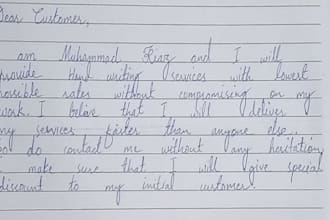 Dear Customer,
am Muhammad Riaz and I will
provide Hand writing services with lowest
possible rates without compromising on my
work. I belive that I will deliver
my services faster than anyone else.
do contact me without any hesitation,
make sure that I will give special
discount to my initial customer.